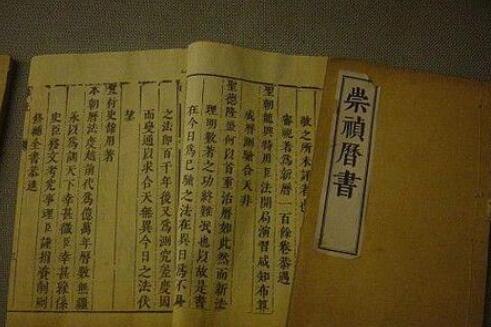 崇禎曆書
敬之所未詳者也
審視著為新曆一百餘卷恭遇
聖朝龍興特用臣法開局演習咸知布算
成曆測驗合天非
聖德隆盛何以首重治曆如此然而新法
理明數著之功終難泯也以故是書
在今日為已驗之法在異日為不易
之法即百千年後又為測究差度因
而變通以求合天無異今日之法伏
望
付史館用著
本朝曆法度越前代為億萬年曆數無疆
永以為訓天下幸甚微臣幸甚係
史臣修文考事理臣謹捐刷
修補全書恭進